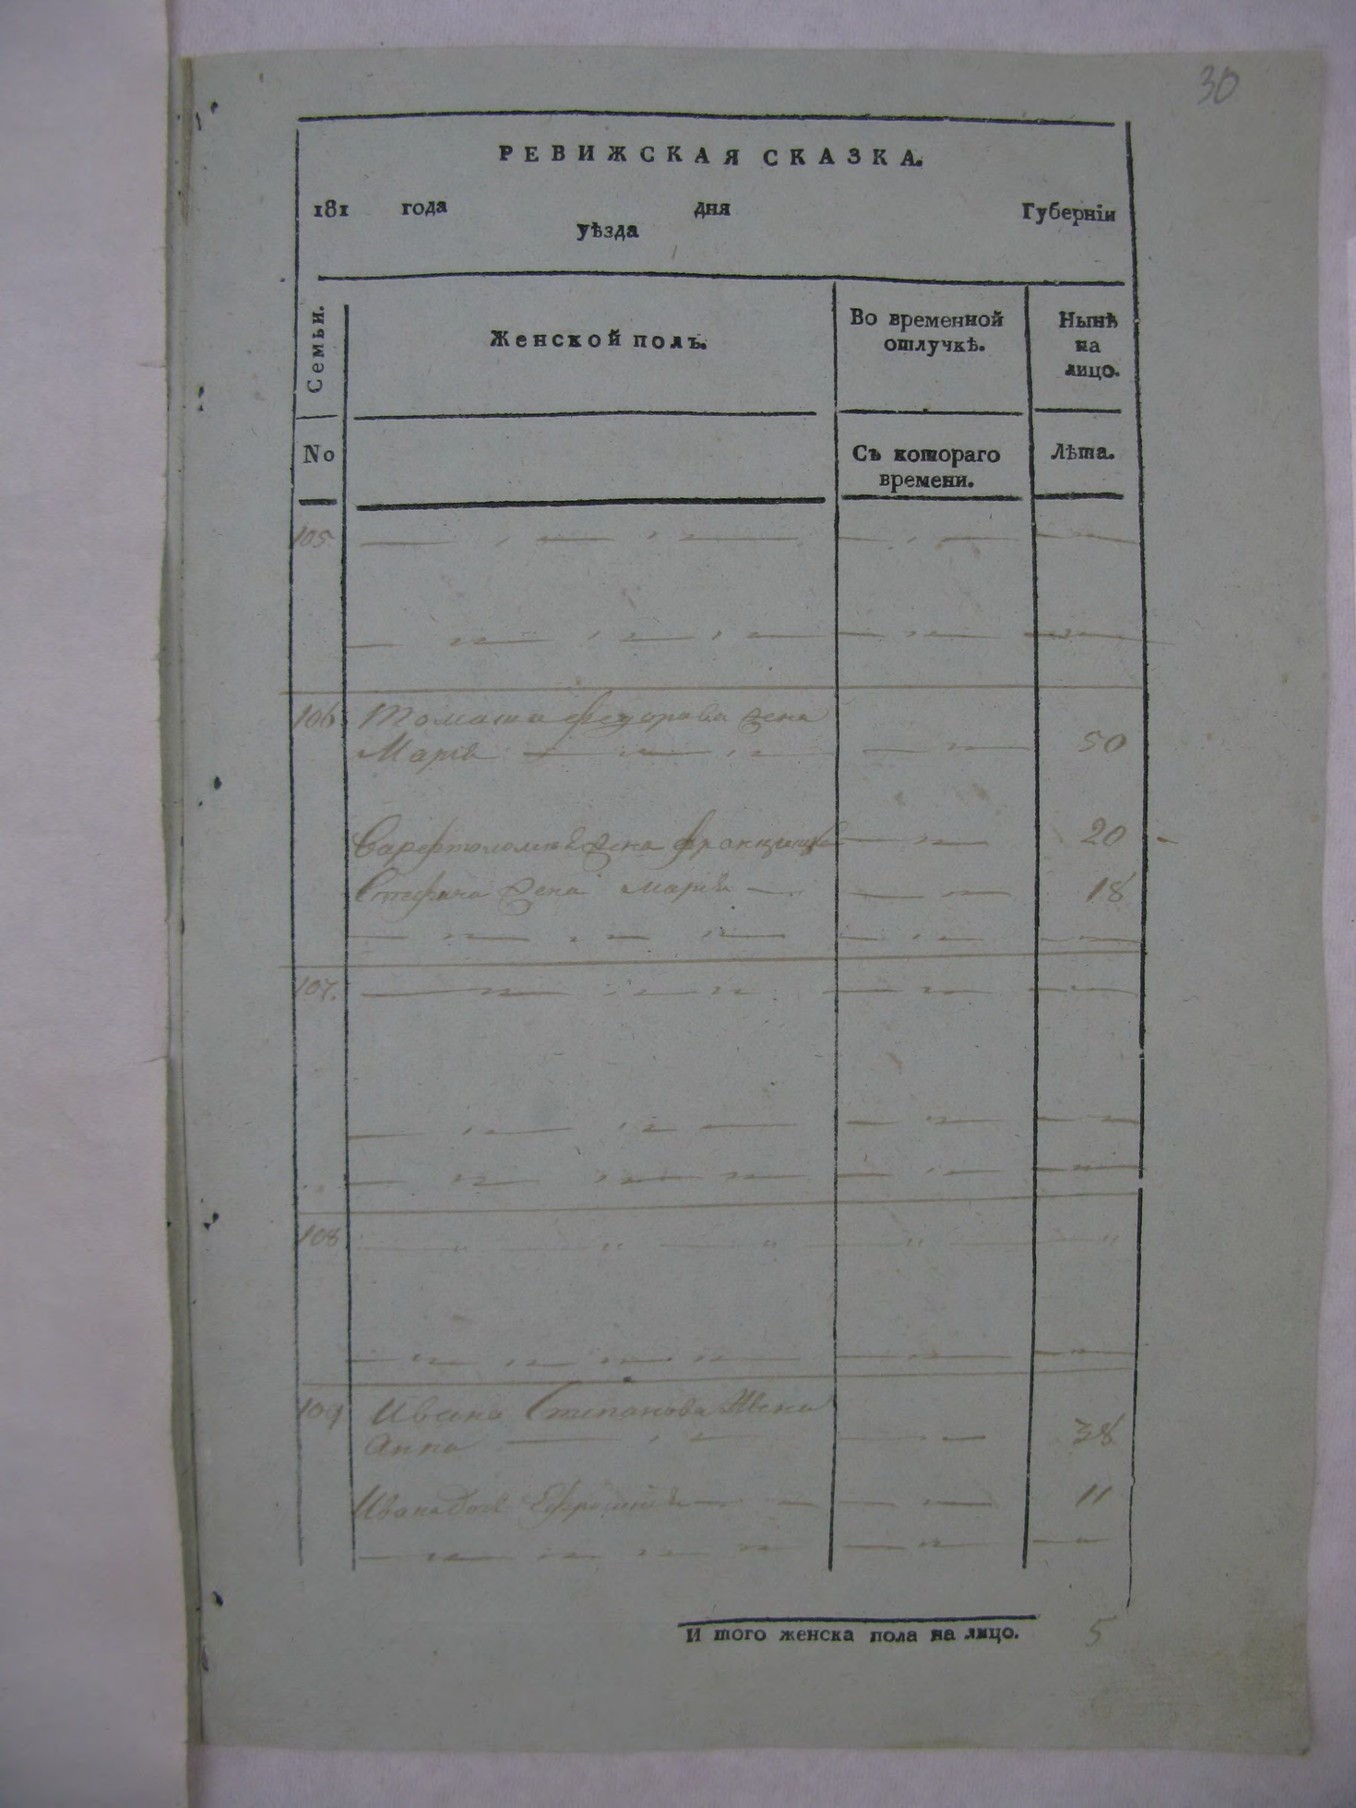 30
РЕВИЖСКАЯ СКАЗКА.
181 года дня Губернїи
уѣзда
Семьи. Женской полъ. Во временной отлучкѣ. Нынѣ на лицо.
No Съ котораго времени. Лѣта.
105
106 Томаша Федорова жена
Марія 50
Варфтоломея жена Францишка 20
Стефана жена Марія 18
107.
108
109 Ивана Степанова жена
Анна 38
Ивана дочь 11
И того женска пола на лицо. 5